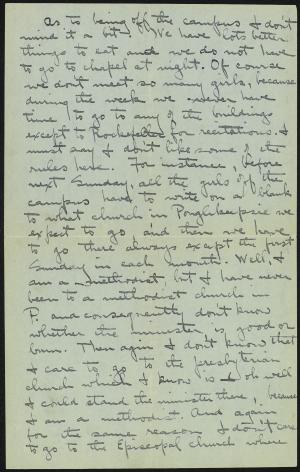 As to being off the campus I don't
mind it a bit. We have lots better
things to eat and we do not have
to go to chapel at night. Of course
we don't meet so many girls, because
during the week we never have
time to go to any of the buildings
except to Rockefeller for recitations. I
must say I don't like some of the
rules here. For instance, before
next Sunday, all the girls off the
campus have to write on a blank
to what church in Poughkeepsie we
expect to go and then we have
to go there always except the first
Sunday in each month. Well, I
am a methodist, but I have never
been to a methodist church in
P. and consequently don't know
whether the minister is good or
bum. Then again I don't know that
I care to go to the presbyterian
church which I know is - oh well
I could stand the minister there, because
I am a methodist. And again
for the same reason I don't care
to go to the Episcopal church where